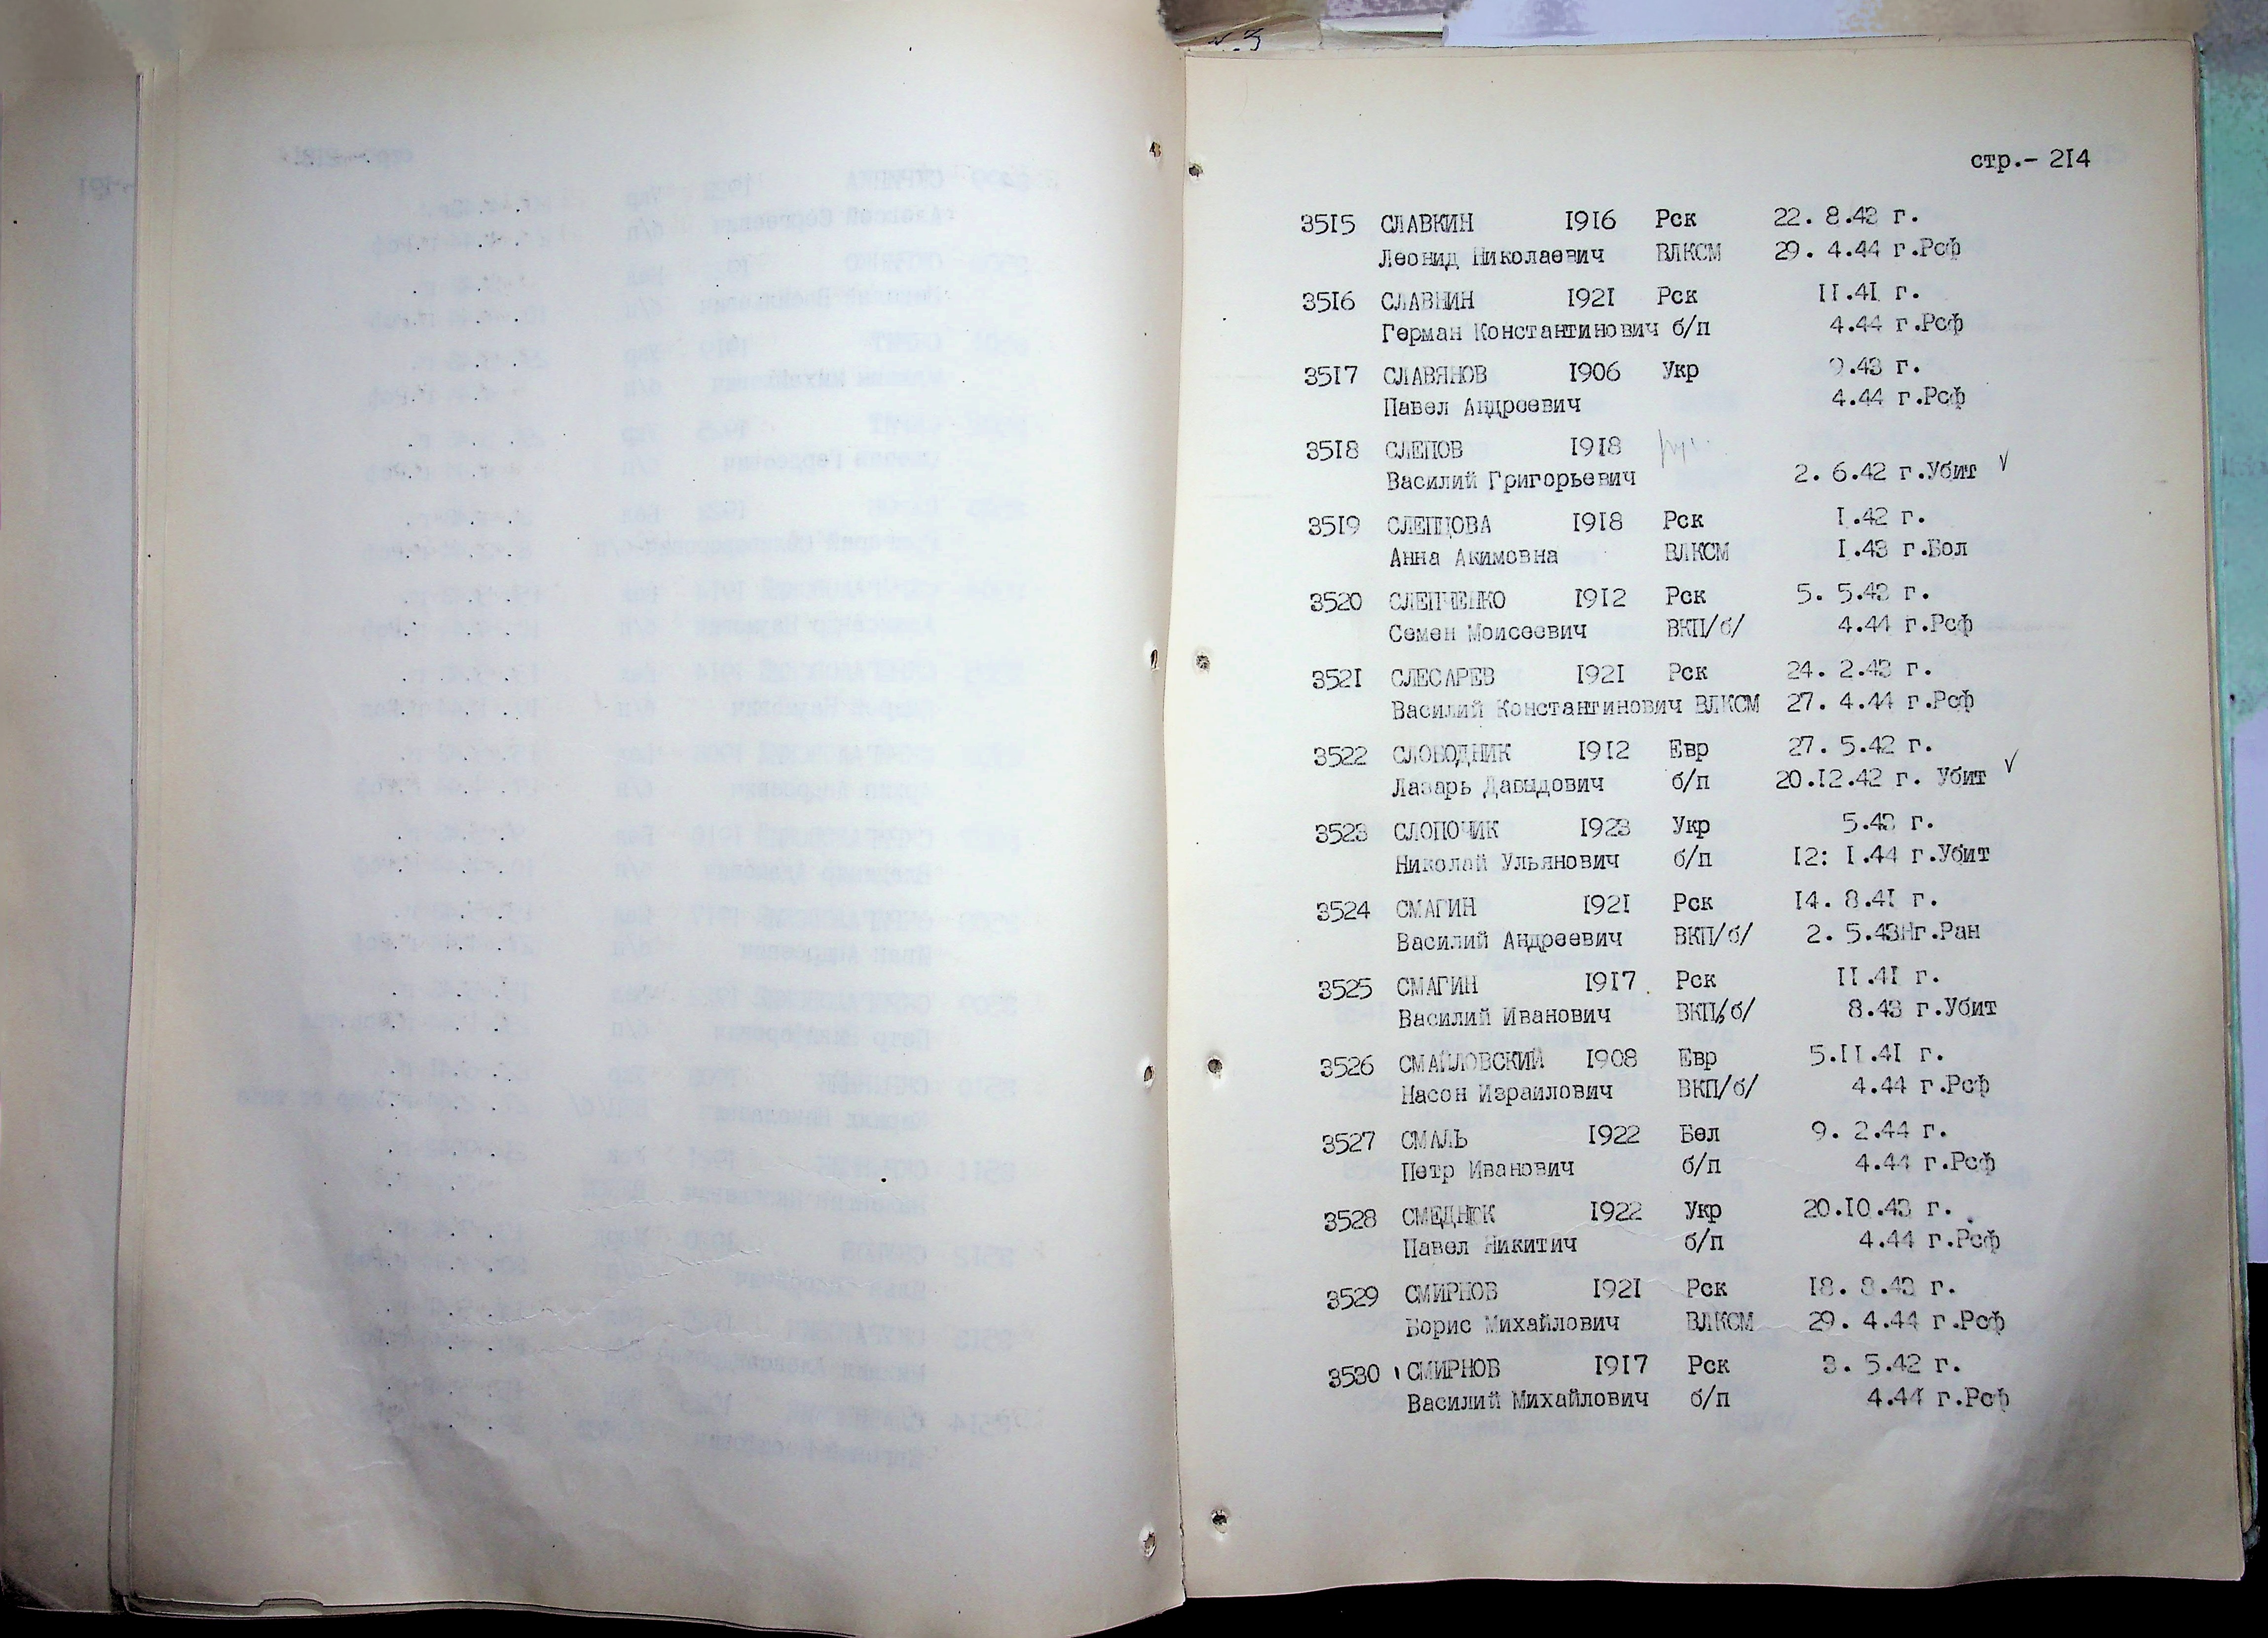 стр.- 2I4
35I5 СЛАВКИН I9I6 Рск 22. 8.43 г.
Леонид Николаевич ВЛКСМ 29. 4.44 г.Рсф
35I6 СЛАВНИН I92I Рск II.4I г.
Герман Константинович б/п 4.44 г.Рсф
35I7 СЛАВЯНОВ I906 Укр 9.43 г.
Павел Андреевич 4.44 г.Рсф
35I8 СЛЕПОВ I9I8
Василий Григорьевич 2. 6.42 г.Убит
35I9 СЛЕПЦОВА I9I8 Рск I.42 г.
Анна Акимовна ВЛКСМ I.43 г.Бол
3520 СЛЕПЧЕНКО I9I2 Рск 5. 5.43 г.
Семен Моисеевич ВКП/б/ 4.44 г.Рсф
352I СЛЕСАРЕВ I92I Рск 24. 2.43 г.
Василий Константинович ВЛКСМ 27. 4.44 г.Рсф
3522 СЛОБОДНИК I9I2 Евр 27. 5.42 г.
Лазарь Давыдович б/п 20.I2.42 г. Убит
3523 СЛОПОЧИК I923 Укр 5.43 г.
Николай Ульянович б/п I2: I.44 г.Убит
3524 СМАГИН I92I Рск I4. 8.4I г.
Василий Андреевич ВКП/б/ 2. 5.43Нг.Ран
3525 СМАГИН I9I7 Рск II.4I г.
Василий Иванович ВКП/б/ 8.43 г.Убит
3526 СМАЙЛОВСКИЙ I908 Евр 5.II.4I г.
Насон Израилович ВКП/б/ 4.44 г.Рсф
3527 СМАЛЬ I922 Бел 9. 2.44 г.
Петр Иванович б/п 4.44 г.Рсф
3528 СМЕДНЮК I922 Укр 20.I0.43 г.
Павел Никитич б/п 4.44 г.Рсф
3529 СМИРНОВ I92I Рск I8. 8.43 г.
Борис Михайлович ВЛКСМ 29. 4.44 г.Рсф
3530 СМИРНОВ I9I7 Рск 3. 5.42 г.
Василий Михайлович б/п 4.44 г.Рсф